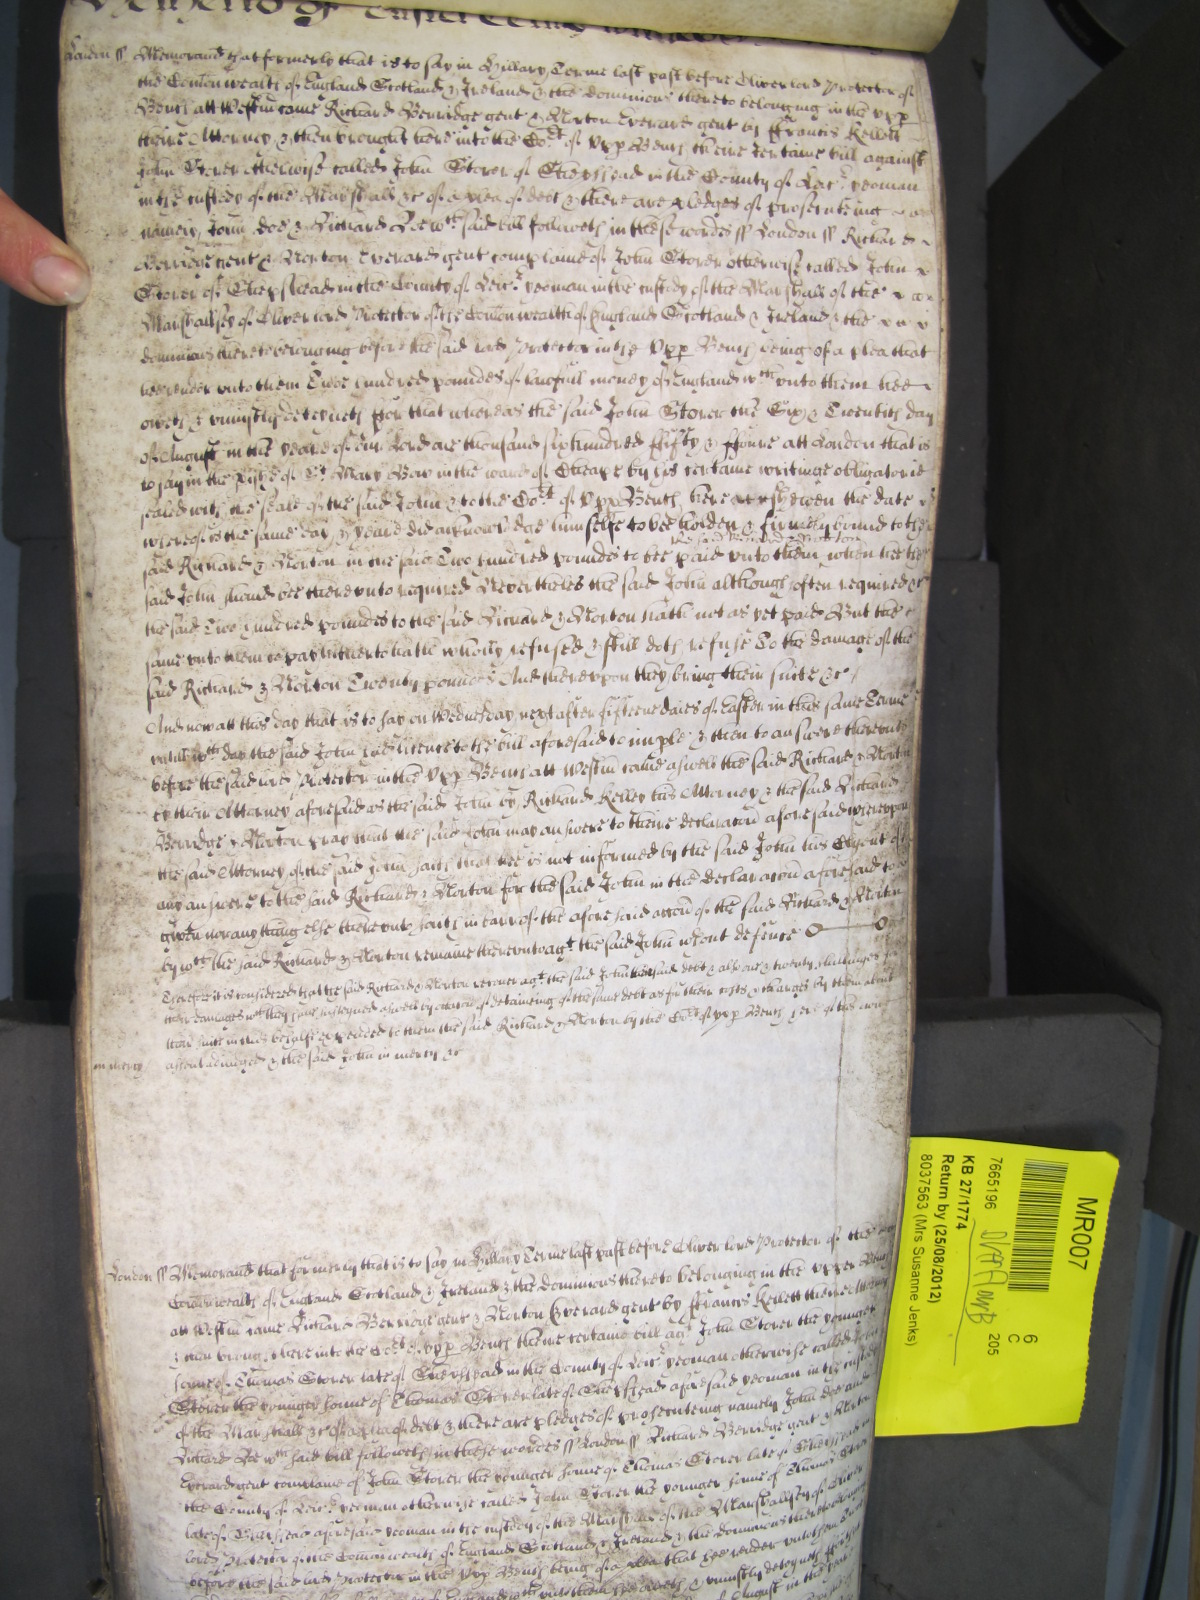 London ss Memorand that formerly that is to say in Hillary Terme last past before Oliver lord Protector of
the Comonwealth of England Scotland & Ireland & the Dominions thereto belonging in the upp
Bench att Westm came Richard Berridge gent & Norton Everard gent by ffrancis Kellett
theire Attorney & then brought here into the Cort of Upp Bench theire certaine bill against
John Storer otherwise called John Storer of Shepshead in the County of Leic yeoman
in the custody of the Marshall &c of a plea of debt & there are pledges of prosecuteing
namely John Doe & Richard Roe wch said bill followeth in these wordes ss London ss Richard
Berridge gent & Norton Everard gent complaine of John Storer otherwise called John
Storer of Shepshead in the County of Leic yeoman in the custody of the Marshall of the
Marshallsey of Oliver lord Protector of the Comonwealth of England Scotland & Ireland & the
dominions thereto belonging before the said lord Protector in the Upp Bench being of a plea that
hee render unto them Twoe hundred poundes of lawfull money of England wch unto them hee
oweth & uniustly deteyneth for that whereas the said John Storer the Six & Twentith day
of August in the yeare of our Lord one thousand six hundred ffifty & ffoure att London that is
to say in the pish of St Mary Bow in the ward of Cheape by his certaine writinge obligatorie
sealed with the seale of the said John & to the Cort of Upp Bench here shewen the date
whereof is the same day & yeare did acknowledge himselfe to bee holden & firmely bound to the
the said Richard & Norton
said Richard & Norton in the said Two hundred poundes to bee paid unto them when hee the
said John should bee thereunto required Nevertheles the said John although often required &c
the said Two hundred poundes to the said Richard & Norton hath not as yet paid But the
same unto them to pay hitherto hath wholly refused & still doth refuse To the damage of the
said Richard & Norton Twenty poundes And thereupon they bring their suite &c
And now att this day that is to say on Wednesday next after fifteene daies of Easter in this same Terme
untill wch day the said John had licence to the bill aforesaid to imple & then to answere thereunto
before the said lord Protector in the Upp Bench att Westm came aswell the said Richard & Norton
by their Attorney aforesaid as the said John by Richard Kelley his Attorney & the said Richard
Berridge & Norton pray that the said John may answere to theire declaracon aforesaid whereupon
the said Attorney of the said John saith that hee is not informed by the said John his Clyent of
any answere to the said Richard & Norton for the said John in the declaracon aforesaid to
given nor any thing else thereunto saith in barr of the aforesaid accon of the said Richard & Norton
by wch the said Richard & Norton remaine thereunto agt the said John without defence
Therefore it is considered that the said Richard & Norton recover agt the said John their said debt & also one & twenty shillinges for
their damages wch they have susteyned aswell by occasion of detaineing of the same debt as for their costs & charges by them about
their suite in this behalfe expended to them the said Richard & Norton by the Cort of Upp Bench here of his owne
in mercy assent adiudged & the said John in mercy &c
London ss Memorand that formerly that is to say in Hillary Terme last past before Oliver lord Protector of the
Comonwealth of England Scotland & Ireland & the Dominions thereto belonging in the Upper Bench
att Westm came Richard Berridge gent & Norton Everard gent by ffrancis Kellett theire Attorney
& then brought here into the Cort of Upp Bench theire certaine bill agt John Storer the younger
sonne of Thomas Storer late of Shepshead in the County of Leic yeoman otherwise called John
Storer the younger sonne of Thomas Storer late of Shepshead aforesaid yeoman in the custody
of the Marshall &c of a plea of debt & there are pledges of prosecuteing namely John Doe and
Richard Roe wch said bill followeth in these wordes ss London ss Richard Berridge gent & Norton
Everard gent complaine of John Storer the younger sonne of Thomas Storer late of Shepshead in
the County of Leic yeoman otherwise called John Storer the younger sonne of Thomas Storer
late of Shepshead aforesaid yeoman in the custody of the Marshall of the Marshallsey of Oliver
lord Protector of the Comonwealth of England Scotland & Ireland & the dominions thereto belonging
before the said lord Protector in the Upp Bench being of a plea that hee render unto them
of England wch unto them hee oweth & uniustly deteyneth for that
of August in the yeare
MR007
6
C
7665196 205
KB 27/1774
Return by (25/08/2012)
8037563 (Mrs Susanne Jenks)